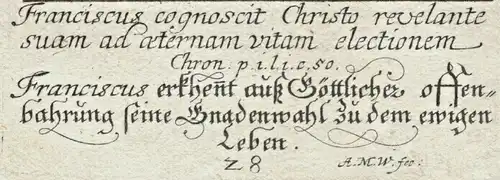 Franciscus cognoscit Christo revelante
suam ad æternam vitam electionem
Chron. p. 1. l. 1. c. 50.
Franciscus erkhent auß Göttlicher offen-
bahrung seine Gnadenwahl zu dem ewigen
Leben.
28 A. M. W. fec: